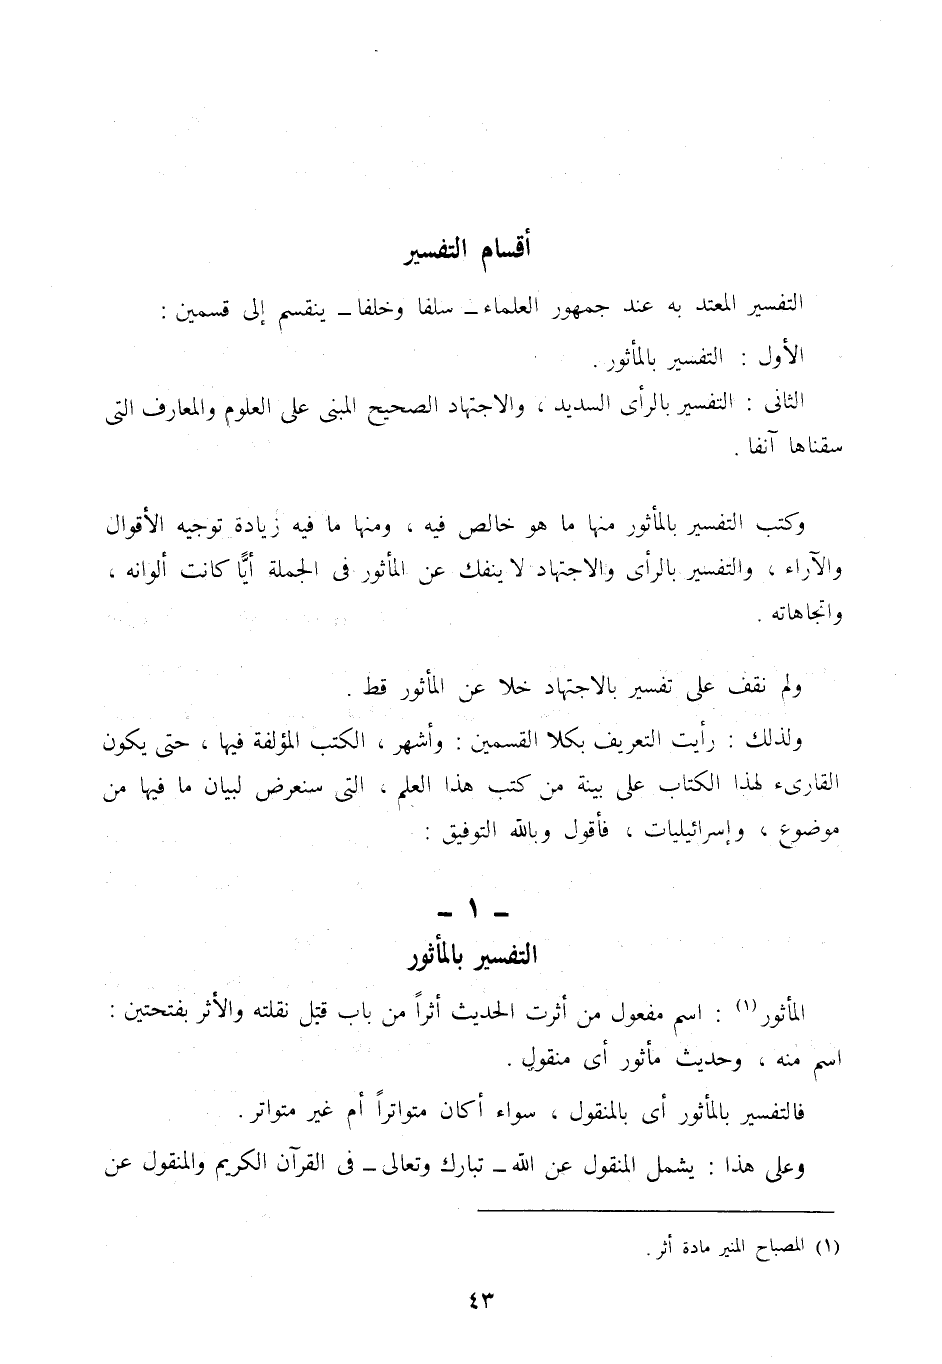 أقسام التفسير
التفسير المعتد به عند جمهور العلماء ـ سلفا وخلفا ـ ينقسم إلى قسمين :
الأول : التفسير بالمأثور .
الثانى : التفسير بالرأى السديد ، والاجتهاد الصحيح المبنى على العلوم والمعارف التى
سقناها آنفا .
وكتب التفسير بالمأثور منها ما هو خالص فيه ، ومنها ما فيه زيادة توجيه الأقوال
والآراء ، والتفسير بالرأى والاجتهاد لا ينفك عن المأثور فى الجملة أيًّا كانت ألوانه ،
واتجاهاته .
ولم نقف على تفسير بالاجتهاد خلا عن المأثور قط .
ولذلك : رأيت التعريف بكلا القسمين : وأشهر ، الكتب المؤلفة فيها ، حتى يكون
القارىء لهذا الكتاب على بينة من كتب هذا العلم ، التى سنعرض لبيان ما فيها من
موضوع ، وإسرائيليات ، فأقول وبالله التوفيق :
ـ ١ ـ
التفسير بالمأثور
المأثور (١) : اسم مفعول من أثرت الحديث أثراً من باب قتل نقلته والأثر بفتحتين :
اسم منه ، وحديث مأثور أى منقول .
فالتفسير بالمأثور أى بالمنقول ، سواء أكان متواتراً أم غير متواتر .
وعلى هذا : يشمل المنقول عن الله ـ تبارك وتعالى ـ فى القرآن الكريم والمنقول عن
(١) المصباح المنير مادة أثر .
٤٣